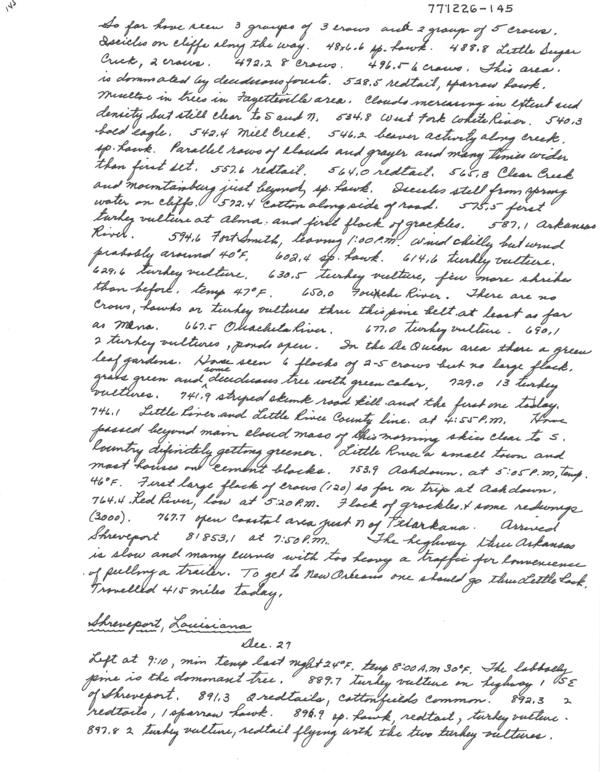 145
771226-145
So far have seen 3 groups of 3 crows and 2 group of 5 crows.
Iscicles on cliffs along the way. 486.6 sp. hawk. 488.8 Little Sugar
Creek, 2 crows. 492.2 8 crows. 496.5 6 crows. This area
is dominated by deciduous forests. 528.5 redtail, sparrow hawk.
Miseltoe in trees in Fayetteville area. Clouds increasing in extent and
density but still clear to S and N. 534.8 West Fork White River. 540.3
bald eagle. 542.4 Mill Creek. 546.2 beaver activity along creek.
sp. hawk. Parallel rows of clouds and grayer and many times wider
than first set. 557.6 redtail. 564.0 redtail. 565.3 Clear Creek
and mountainburg just beyond, sp. hawk. Iscicles still from spring
water on cliffs. 572.4 Cotton along side of road. 575.5 first
turkey vulture at Alma. and first flock of grackles. 587.1 Arkansas
River. 594.6 Fort Smith, leaving 1:00 P.M. Wind chilly but wind
probably around 40°F. 602.4 sp. hawk. 614.6 turkey vulture.
629.6 turkey vulture. 630.5 turkey vulture, few more shrikes
than before. temp 47°F. 650.0 River. There are no
Crows, hawks or turkey vultures thru this pine belt at least as far
as Mena. 667.5 Ouachita River. 677.0 turkey vulture. 690.1
2 turkey vultures, ponds open. In the De Queen area there a green
leaf gardens. Have seen 6 flocks of 2-5 crows but no large flock.
grass green and some deciduous tree with green color. 729.0 13 turkey
vultures. 741.9 striped skunk road kill and the first one today.
746.1 Little River and Little River County line. at 4:55 P.M. Have
passed beyond main cloud mass of this morning skies clear to S.
Country difinitely getting greener. Little River a small town and
most houses on cement blocks. 753.9 Ashdown. at 5:05 P.M, temp.
46°F. First large flock of crows (120) so far on trip at Ashdown.
764.4 Red River, low at 5:20 P.M. Flock of grackles & some redwings
(3000). 767.7 open coastal area just N of Texarkana. Arrived
Shreveport 81853.1 at 7:50 P.M. The highway thru Arkansas
is slow and many curves with too heavy a traffic for convenience
of pulling a trailer. To get to New Orleans one should go thru Little Rock.
Travelled 415 miles today.
Shreveport, Louisiana
Dec. 27
Left at 9:10, min temp last night 24°F. temp 8:00 A.M 30°F. The loblolly
pine is the dominant tree. 889.7 turkey vulture on highway 1 SE
of Shreveport. 891.3 2 redtails, cottonfields common. 892.3 2
redtails, 1 sparrow hawk. 896.9 sp. hawk, redtail, turkey vulture.
897.8 2 turkey vulture, redtail flying with the two turkey vultures.